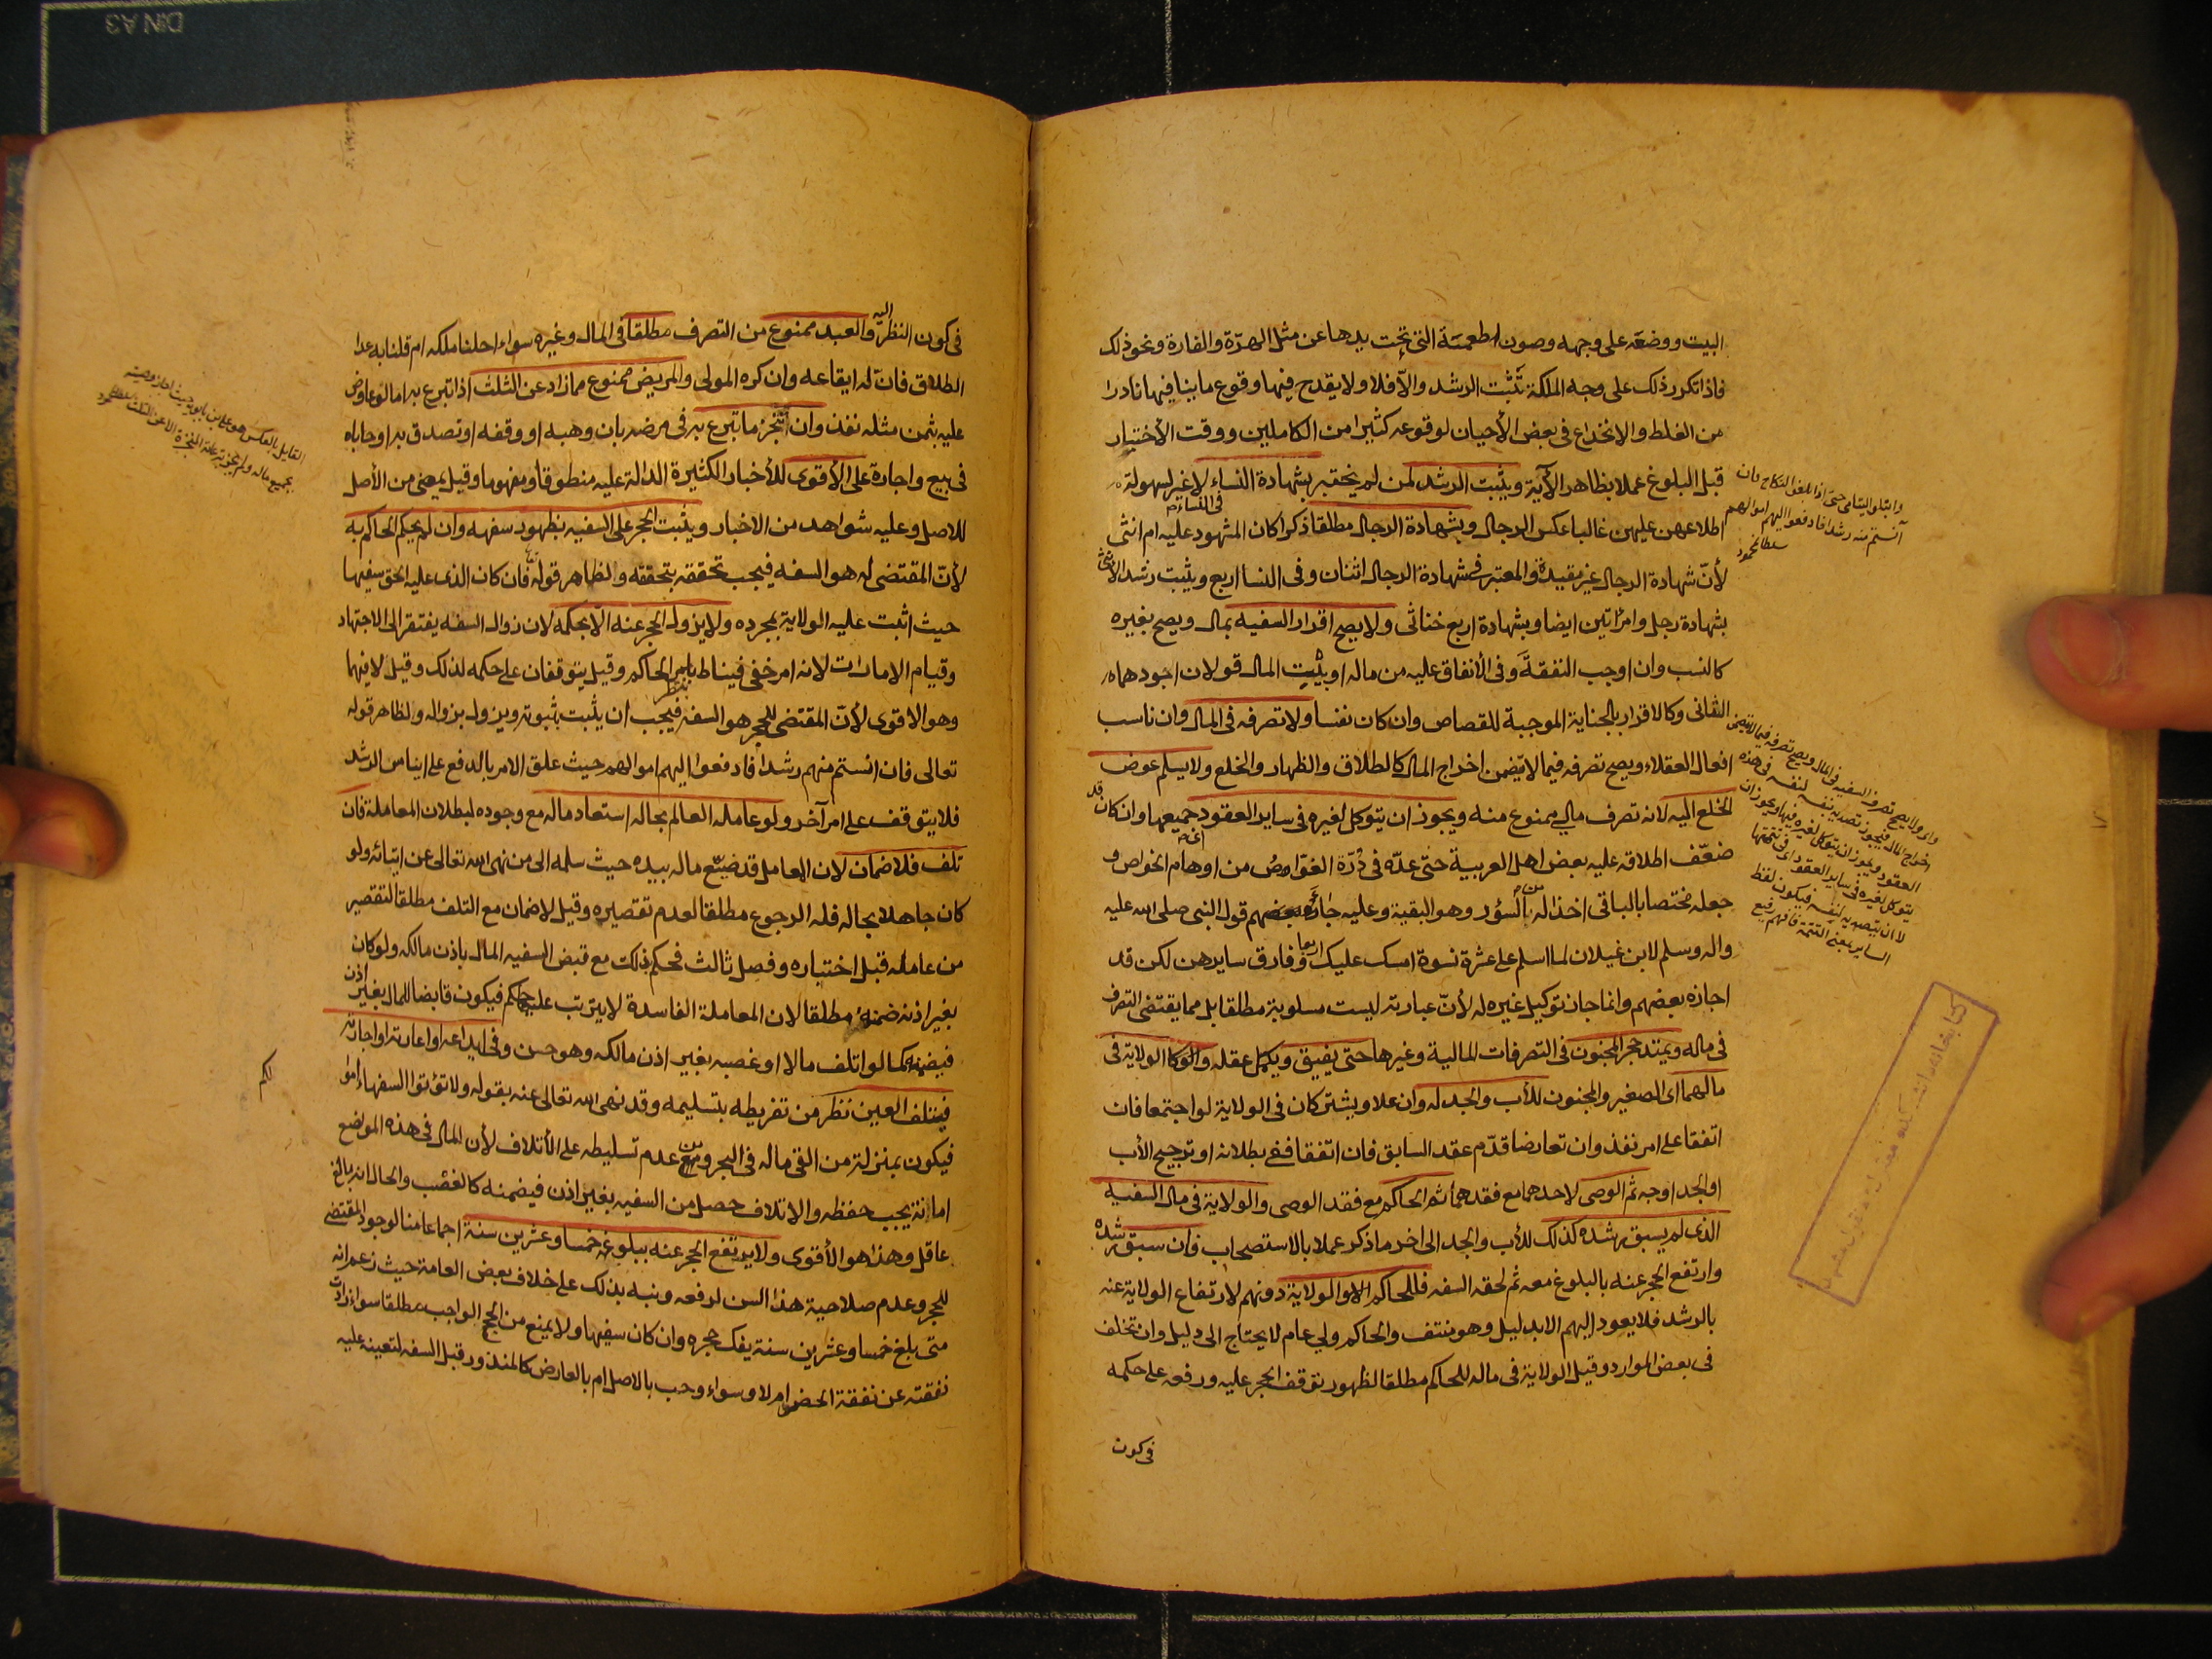 البيت ووضعه على وجهه وصون اطعمته التي تحت يدها عن مثل الهرّة والفارة ونحو ذلك
فاذا تكرر ذلك على وجه الملكة تثبت الرشد والّا فلا ولا يقدح فيها وقوع ما ينافيها نادرا
من الغلط والانخداع في بعض الأحيان لوقوعه كثيرا من الكاملين ووقت الأختبار
قبل البلوغ عملا بظاهر الآية ويثبت الرشد لمن لم يختبر بشهادة النساء لا غير لسهولة
اطلاعهن عليهن غالبا عكس الرجال وبشهادة الرجال مطلقا ذكرا كان المشهود عليه ام انثى
في النساء
لأنّ شهادة الرجال غير مقيدة والمعتبر في شهادة الرجال اثنان وفي النسا اربع ويثبت رشد الانثى
بشهادة رجل وامرأتين ايضا وبشهادة اربع خناثى ولا يصح اقرار السفيه بمال ويصح بغيره
كالنسب وان اوجب النفقة وفي الأنفاق عليه من ماله او بيت المال قولان اجودهما
الثاني وكالاقرار بالجناية الموجبة للقصاص وان كان نفسا ولا تصرفه في المال وان ناسب
افعال العقلاء ويصح تصرفه فيما لا يتضمن اخراج المال كالطلاق والظهار والخلع ولا يسلم عوض
الخلع اليه لانه تصرف مالي ممنوع منه ويجوز ان يتوكل لغيره في ساير العقود جميعها وان كان قد
ضعّف اطلاقه عليه بعض اهل العربية حتى عدّه في درّة الغوّاص من اوهام الخواص و
جعله مختصا بالباقي اخذا له من السؤر وهو البقية وعليه جاء قول النبي صلى الله عليه
واله وسلم لابن غيلان لما اسلم على عشرة نسوة امسك عليك اربعا وفارق سايرهن لكن قد
اجازه بعضهم وانما جاز توكيل غيره له لأنّ عبارته ليست مسلوبة مطلقا بل مما يقتضى التصرف
في ماله ويمتد حجر المجنون في التصرفات المالية وغيرها حتى يفيق ويكمل عقله والولاية في
مالهما اى الصغير والمجنون للأب والجد له وان علا ويشتركان في الولاية لو اجتمعا فان
اتفقا على امر نفذ وان تعارضا قدّم عقد السابق فان اتفقا ففي بطلانه او ترجيح الأب
او الجد اوجه ثم الوصى لاحدهما مع فقدهما ثم الحاكم مع فقد الوصى والولاية في مال السفيه
الذى لم يسبق رشده كذلك للأب والجد الى اخر ما ذكر عملا بالاستصحاب وان سبق رشده
وارتفع الحجر عنه بالبلوغ معه ثم لحقه السفه فللحاكم الولاية دونهم لارتفاع الولاية عنه
بالرشد فلا يعود اليهم الا بدليل وهو منتف والحاكم ولي عام لا يحتاج الى دليل وان تخلف
في بعض الموارد وقيل الولاية في ماله للحاكم مطلقا لظهور توقف الحجر عليه ورفعه على حكمه
في كون
وابتلوا اليتامى حتى اذا بلغوا النكاح فان
آنستم منه رشدا فادفعوا اليهم اموالهم
في كون النظر اليه والعبد ممنوع من التصرف مطلقا في المال وغيره سواء احلنا ملكه ام قلنا به عدا
الطلاق فانّ له ايقاعه وان كره المولى والمريض ممنوع مما زاد عن الثلث اذا تبرع به اما لو عاوض
عليه بثمن مثله نفذ وان نجز ما تبرع به في مرضه بان وهبه او وقفه او تصدق به او حاباه
في بيع واجارة على الأقوى للأخبار الكثيرة الدالة عليه منطوقا ومفهوما وقيل يمضى من الأصل
للاصل وعليه شواهد من الاخبار ويثبت الحجر على السفيه بظهور سفهه وان لم يحكم الحاكم به
لأنّ المقتضى له هو السفه فيجب تحققه بتحققه ولظاهر قوله فان كان الذى عليه الحق سفيها
حيث اثبت عليه الولاية بمجرده ولا يزول الحجر عنه الّا بحكمه لان زوال السفه يفتقر الى الاجتهاد
وقيام الامارات لانه امر خفي فيناط بنظر الحاكم وقيل يتوقفان على حكمه لذلك وقيل لا فيهما
وهو الاقوى لأنّ المقتضى للحجر هو السفه فيجب ان يثبت بثبوته ويزول بزواله ولظاهر قوله
تعالى فان آنستم منهم رشدا فادفعوا اليهم اموالهم حيث علق الامر بالدفع على ايناس الرشد
فلا يتوقف على امر آخر ولو عامله العالم بحاله استعاد ماله مع وجوده لبطلان المعاملة فان
تلف فلا ضمان لان المعامل قد ضيّع ماله بيده حيث سلمه الى من نهى الله تعالى عن ايتائه ولو
كان جاهلا بحاله فله الرجوع مطلقا لعدم تقصيره وقيل لا ضمان مع التلف مطلقا لتقصير
من عامله قبل اختباره وفصل ثالث فحكم بذلك مع قبض السفيه المال باذن مالكه ولو كان
بغير اذنه ضمنه مطلقا لان المعاملة الفاسدة لا يترتب عليها حكم فيكون قابضا للمال بغير اذن
فيضمنه كما لو اتلف مالا او غصبه بغير اذن مالكه وهو حسن وفي ايداعه او اعارته او اجارته
فيتلف العين نظر من تفريطه بتسليمه وقد نهى الله تعالى عنه بقوله ولا تؤتوا السفهاء اموالكم
فيكون بمنزلة من القى ماله في البحر ومن عدم تسليطه على الأتلاف لأن المال في هذه المواضع
امانة يجب حفظه والاتلاف حصل من السفيه بغير اذن فيضمنه كالغصب والحال انه بالغ
عاقل وهذا هو الأقوى ولا يرتفع الحجر عنه ببلوغه خمسا وعشرين سنة اجماعا منا لوجود المقتضى
للحجر وعدم صلاحية هذا السن لرفعه ونبه بذلك على خلاف بعض العامة حيث زعم انه
متى بلغ خمسا وعشرين سنة يفك حجره وان كان سفيها ولا يمنع من الحج الواجب مطلقا سواء زادت
نفقته عن نفقة الحضر ام لا وسواء وجب بالاصل ام بالعارض كالمنذور قبل السفه لتعينه عليه
DIN A3